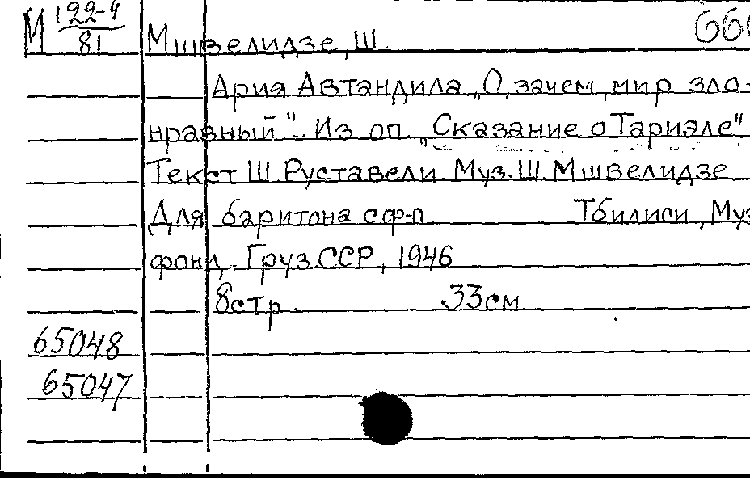 М 122-4
81
Мшвелидзе, Ш.
Ария Автандила „О, зачем, мир зло-
нравный". Из оп. „Сказание о Тариэле"
Текст Ш. Руставели Муз. Ш. Мшвелидзе
Для баритона с ф-п Тбилиси, Муз
фонд. Груз.ССР, 1946
8стр. 33см
65048
65047